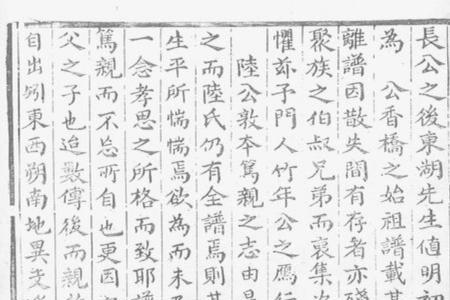 長公之後東湖先生值明初
為 公香橋之始祖譜載甚
離譜因散失間有存者亦殘
聚族之伯叔兄弟而裒集次
懼茲予門人竹年公之鴈行
陸公敦本篤親之志由是
之而陸氏仍有全譜焉則其
生平所惴惴焉欲為而未及
一念孝思之所格而致耶譜
篤親而不忘所自也更因
父之子也追數傳後而親於
自出矧東西朔南地異支